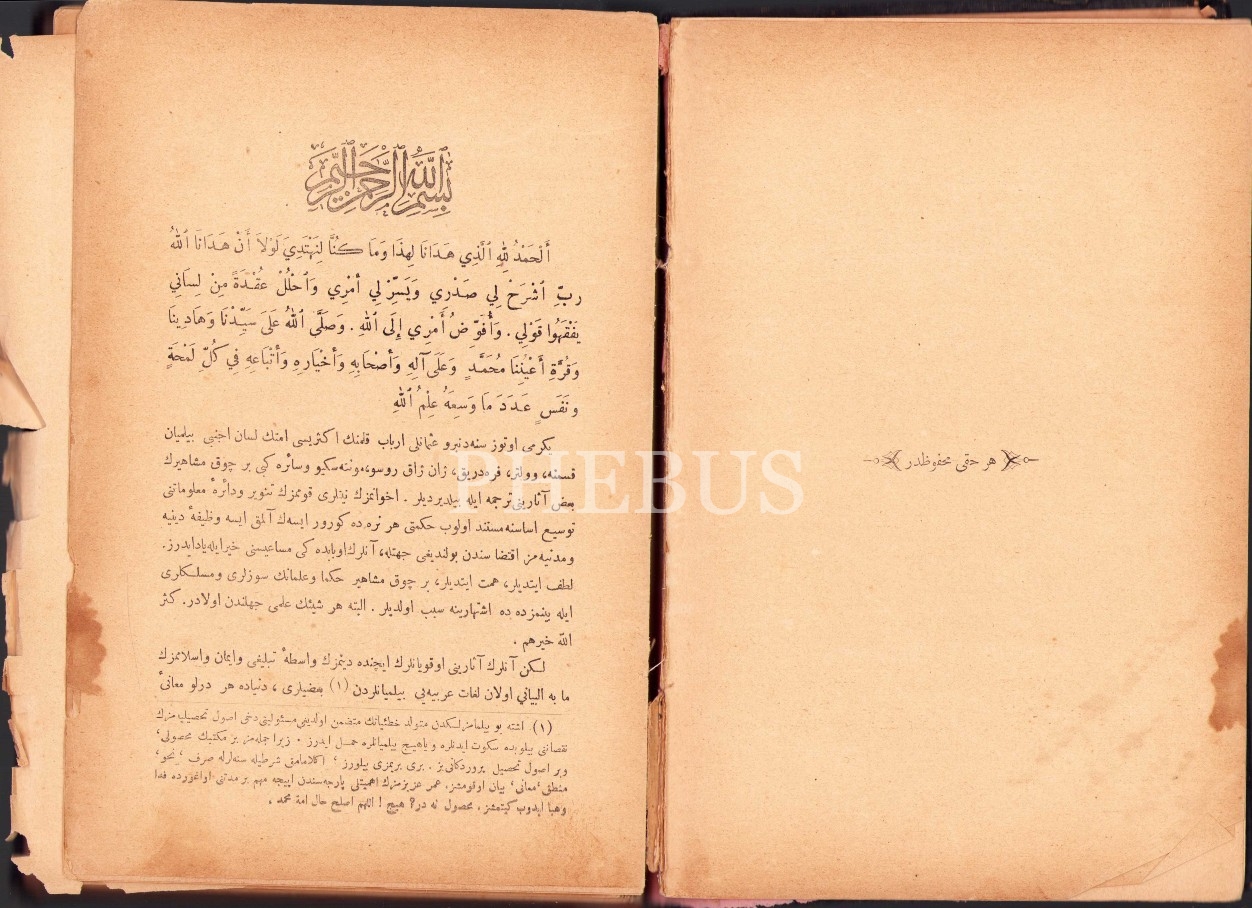 هر حقى محفوظدر
بسم الله الرحمن الرحيم
أَلْحَمْدُ لِلهِ ٱلَّذِي هَدَانَا لِهَذَا وَمَا كُنَّا لِنَهْتَدِيَ لَوْلاَ أَنْ هَدَانَا ٱللهُ
ربِّ ٱشْرَحْ لِي صَدْرِي وَيَسِّرْ لِي أَمْرِي وَٱحْلُلْ عُقْدَةً مِنْ لِسَانِي
يَفْقَهُوا قَوْلِي . وَأُفَوِّضُ أَمْرِي إِلَى ٱللهِ . وَصَلَّى ٱللهُ عَلَى سَيِّدِنَا وَهَادِينَا
وَقُرَّةِ أَعْيُنِنَا مُحَمَّدٍ وَعَلَى آلِهِ وَأَصْحَابِهِ وَأَخْيَارِهِ وَأَتْبَاعِهِ فِي كُلِّ لَمْحَةٍ
وَنَفَسٍ عَدَدَ مَا وَسِعَهُ عِلْمُ ٱللهِ
يكرمى اوتوز سنه‌دنبرو عثمانلى ارباب قلمنك اكثريسى امتك لسان اجنبى بيلميان
قسمنه، وولتر، فره‌دريق، ژان ژاق روسو، مونته‌سكيو وسائره كبى بر چوق مشاهيرك
بعض آثارينى ترجمه ايله بيلديرديلر . اخوانمزك نيتلرى قومزك تنوير ودائرهٔ معلوماتنى
توسيع اساسنه مستند اولوب حكمتى هر نره ده كورور ايسه‌ك آلمق ايسه وظيفهٔ دينيه
ومدنيه‌مز اقتضا سندن بولنديغى جهتله، آنلرك اوبابده كى مساعيسنى خيرايله يادايدرز.
لطف ايتديلر، همت ايتديلر، بر چوق مشاهير حكما وعلمانك سوزلرى ومسلكلرى
ايله بينمزده ده اشتهارينه سبب اولديلر . البته هر شيئك علمى جهلندن اولادر. كثر
الله خيرهم .
لكن آنلرك آثارينى اوقويانلرك ايچنده دينمزك واسطهٔ تبليغى وايمان واسلامزك
ما به البيانى اولان لغات عربيه‌يى بيلميانلردن (١) بعضيلرى ، دنياده هر درلو معانىٔ
(١) اشته بو بيلمامزلكدن متولد خطئياتك متضمن اولديغى مسئوليتى دخى اصول تحصيليمزك
نقصاننى بيلوبده سكوت ايدنلره وياهيچ بيلميانلره حمل ايدرز . زيرا جمله‌مز بر مكتبك محصولى،
وبر اصول تحصيل پروردكانى‌يز . برى بريمزى بيلورز ، اكلامامق شرطيله سنه‌لرله صرف ، نحو،
منطق ، معانى ، بيان اوقومشز. عمر عزيزمزك اهميتلى پارچه‌سندن اپيجه مهم بر مدتنى اواغورده فدا
وهبا ايدوب كيتمشز . محصول نه در؟ هيچ ! اللهم اصلح حال امة محمد .
PHEBUS